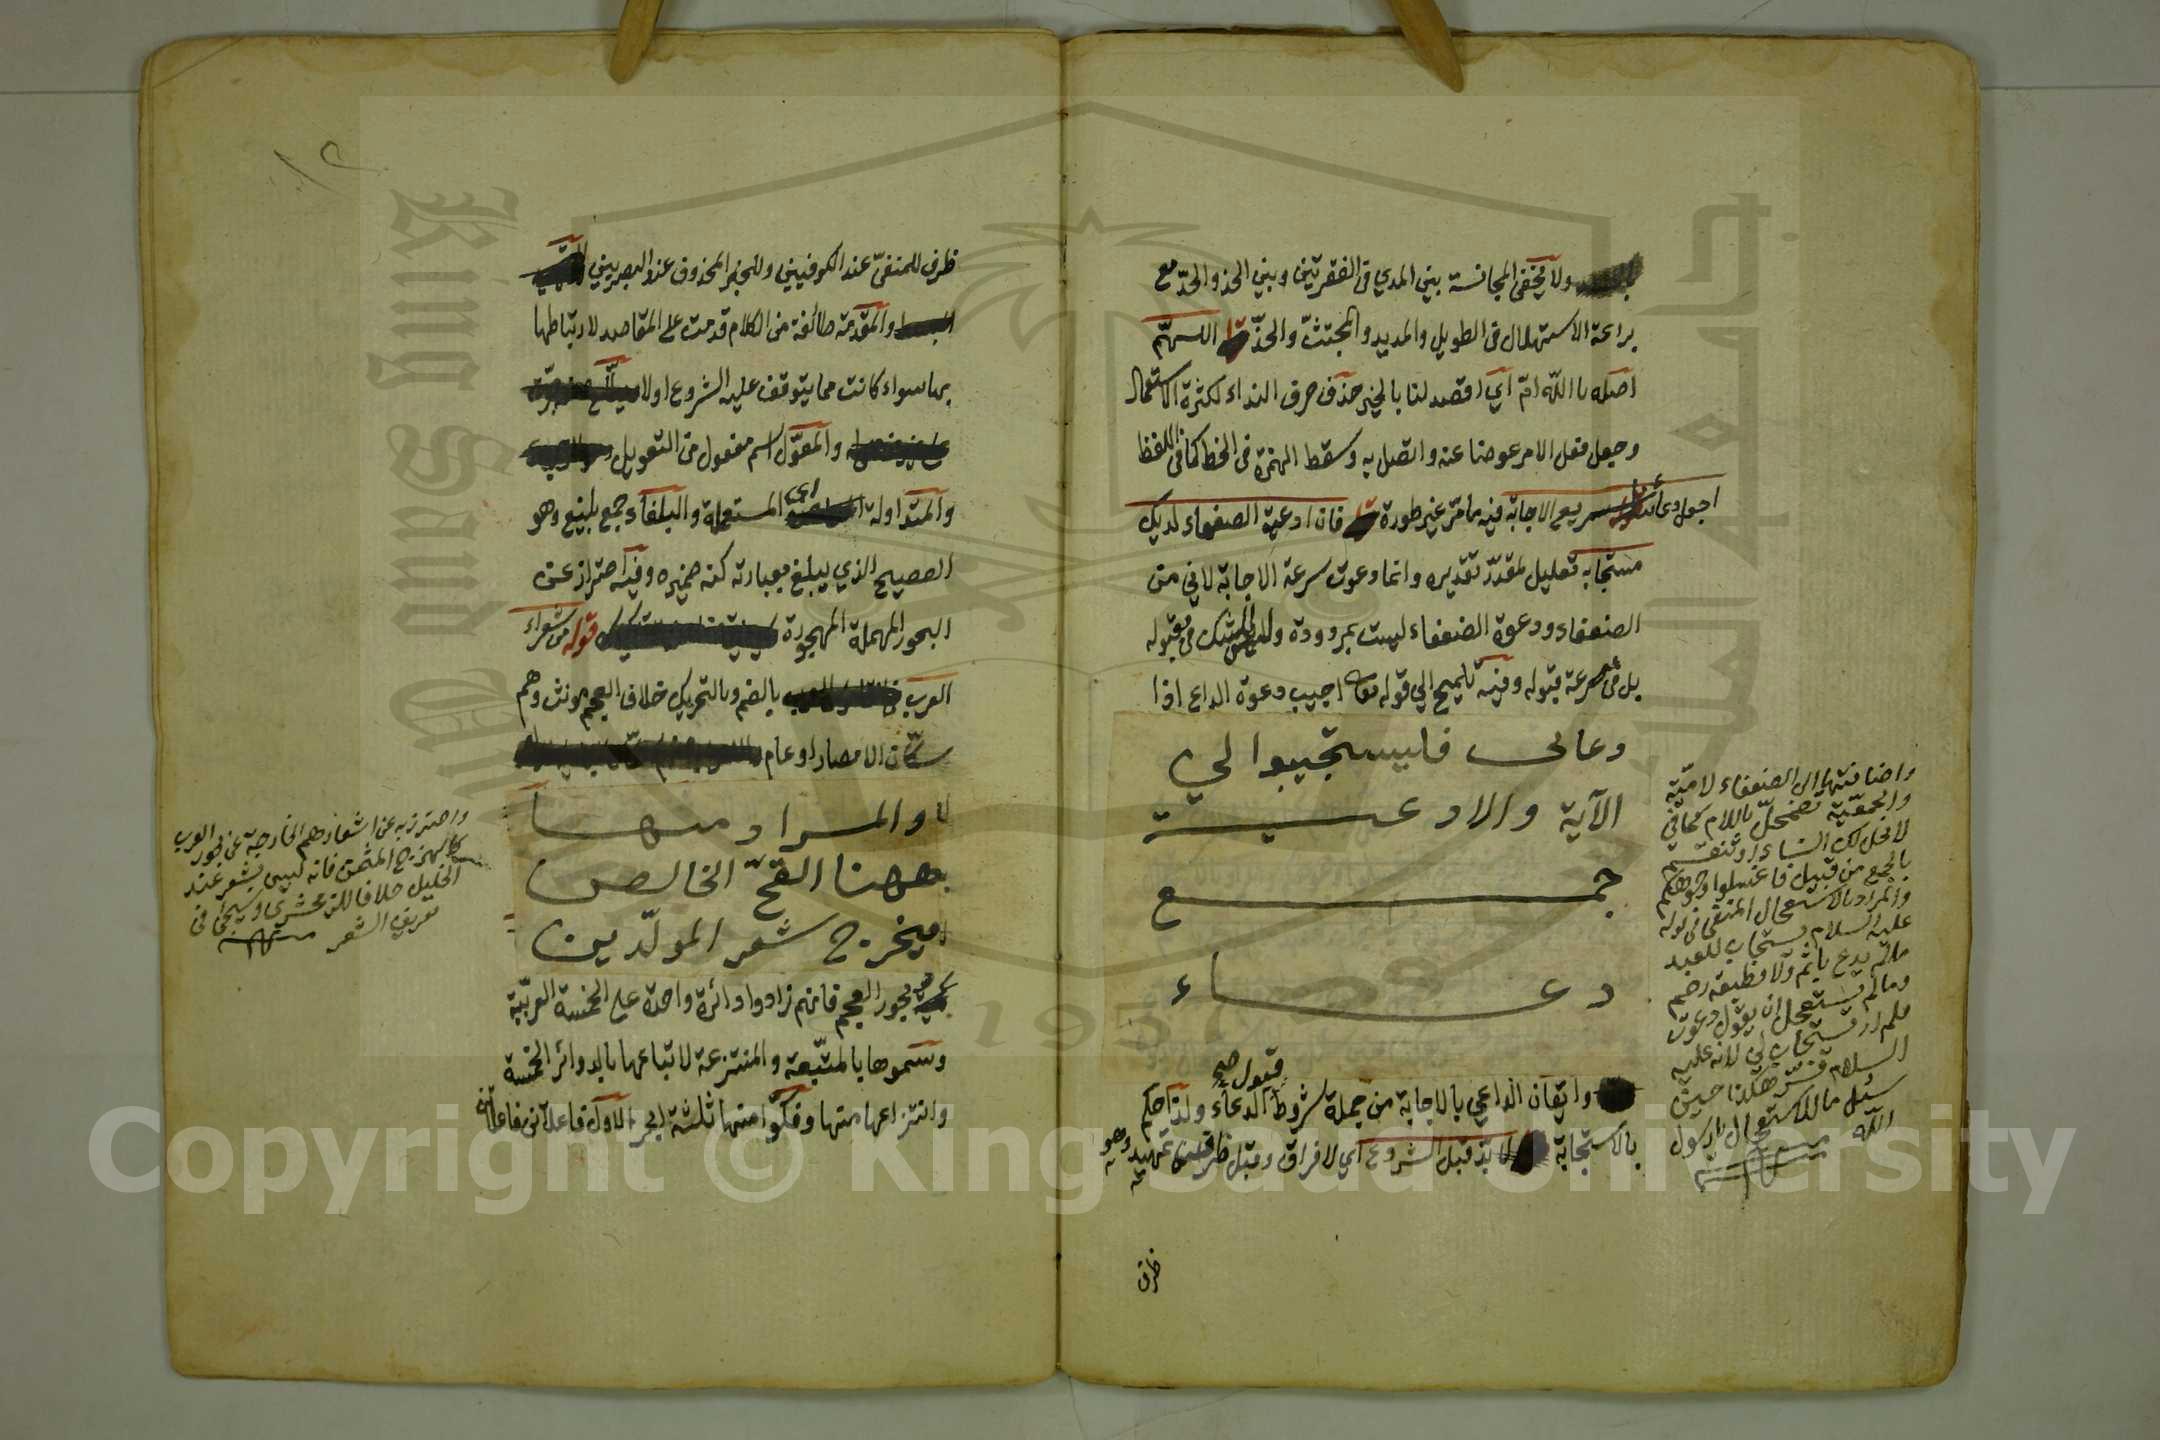 ولا يخفى المجانسة بين المدي في الفقرتين وبين الحذ والحدّ مع
براعة الاستهلال في الطويل والمديد والمجتثّ والحذّ اللهمّ
اصله يا الله امّ اي اقصد لنا بالخير حذف حرف النداء لكثرة الاستعمال
وجعل فعل الامر عوضا عنه واتصل به وسقط الهمزة في الخط كما في اللفظ
اجعل دعائنا سريع الاجابة فيه ما مرّ غير طورة فان ادعية الضعفاء لديك
مستجابه تعليل لمقدّر تقديره وانما دعوت سرعة الاجابة لاني من
الضعفاء ودعوة الضعفاء ليست بمردودة شك في قبوله
بل في سرعة قبوله وفيه تلميح الي قوله تعا اجيب دعوة الداع اذا
دعانى فليستجيبوا لي
الآية والادعيـــة
جمـــــع
دعـــاء
قبول صح
وايقان الداعي بالاجابة من جملة شروط الدعاء ولذا حكم
بالاستجابة لا بد قبل الشروع اي لا فراق وقبل ظرف تمهيد وهو
ظرف
واضافتها الى الضعفاء لاميّة
والجمعيّة تضمحلّ باللام كما في
لا يحل لك النساء او تنقسم
بالجمع من قبيل فاغسلوا وجوهكم
والمراد بالاستعجال المنتفى في قوله
عليه السلام يستجاب للعبد
مالم يدع باثم ولا قطيعة رحم
ومالم يستعجل ان يقول دعوت
فلم ار يستجاب لي لانه عليه
السلام فسّر هكذا حين
سئل ما الاستعجال يا رسول
الله
منه
ظرف للمنفىّ عند الكوفيين وللخبر المحذوف عند البصريين
والمقدمة طائفة من الكلام قدمت على المقاصد لارتباطها
بها سواء كانت مما يتوقف عليه الشروع اولا
والمعوّل اسم مفعول من التعويل
والمتداولة اى المستعملة والبلغاء جمع بليغ وهو
الفصيح الذي يبلغ بعبارته كنه ضميره وفيه احتراز عن
البحور المهملة المهجورة قوله من شعراء
العرب بالضم وبالتحريك خلاف العجم مونث وهم
سكّان الامصار او عام
والمراد منهـــا
ههنا القحّ الخالص
فيخرج شعر المولّدين
بحور العجم فانهم زادوا دائرة واحدة على الخمسة العربيّة
وسموها بالمتبّعة والمنتزعة لاتباعها بالدوائر الخمسة
وانتزاعها منها وفكّوا منها ثلثة ابحر الاول فاعلاتن مفاعلاتن
واحترز به عن اشعارهم الخارجة عن بحور العرب
كالهزج المثمن فانه ليس بشعر عند
الخليل خلافا للزمخشري وسيجئ في
تعريف الشعر منه